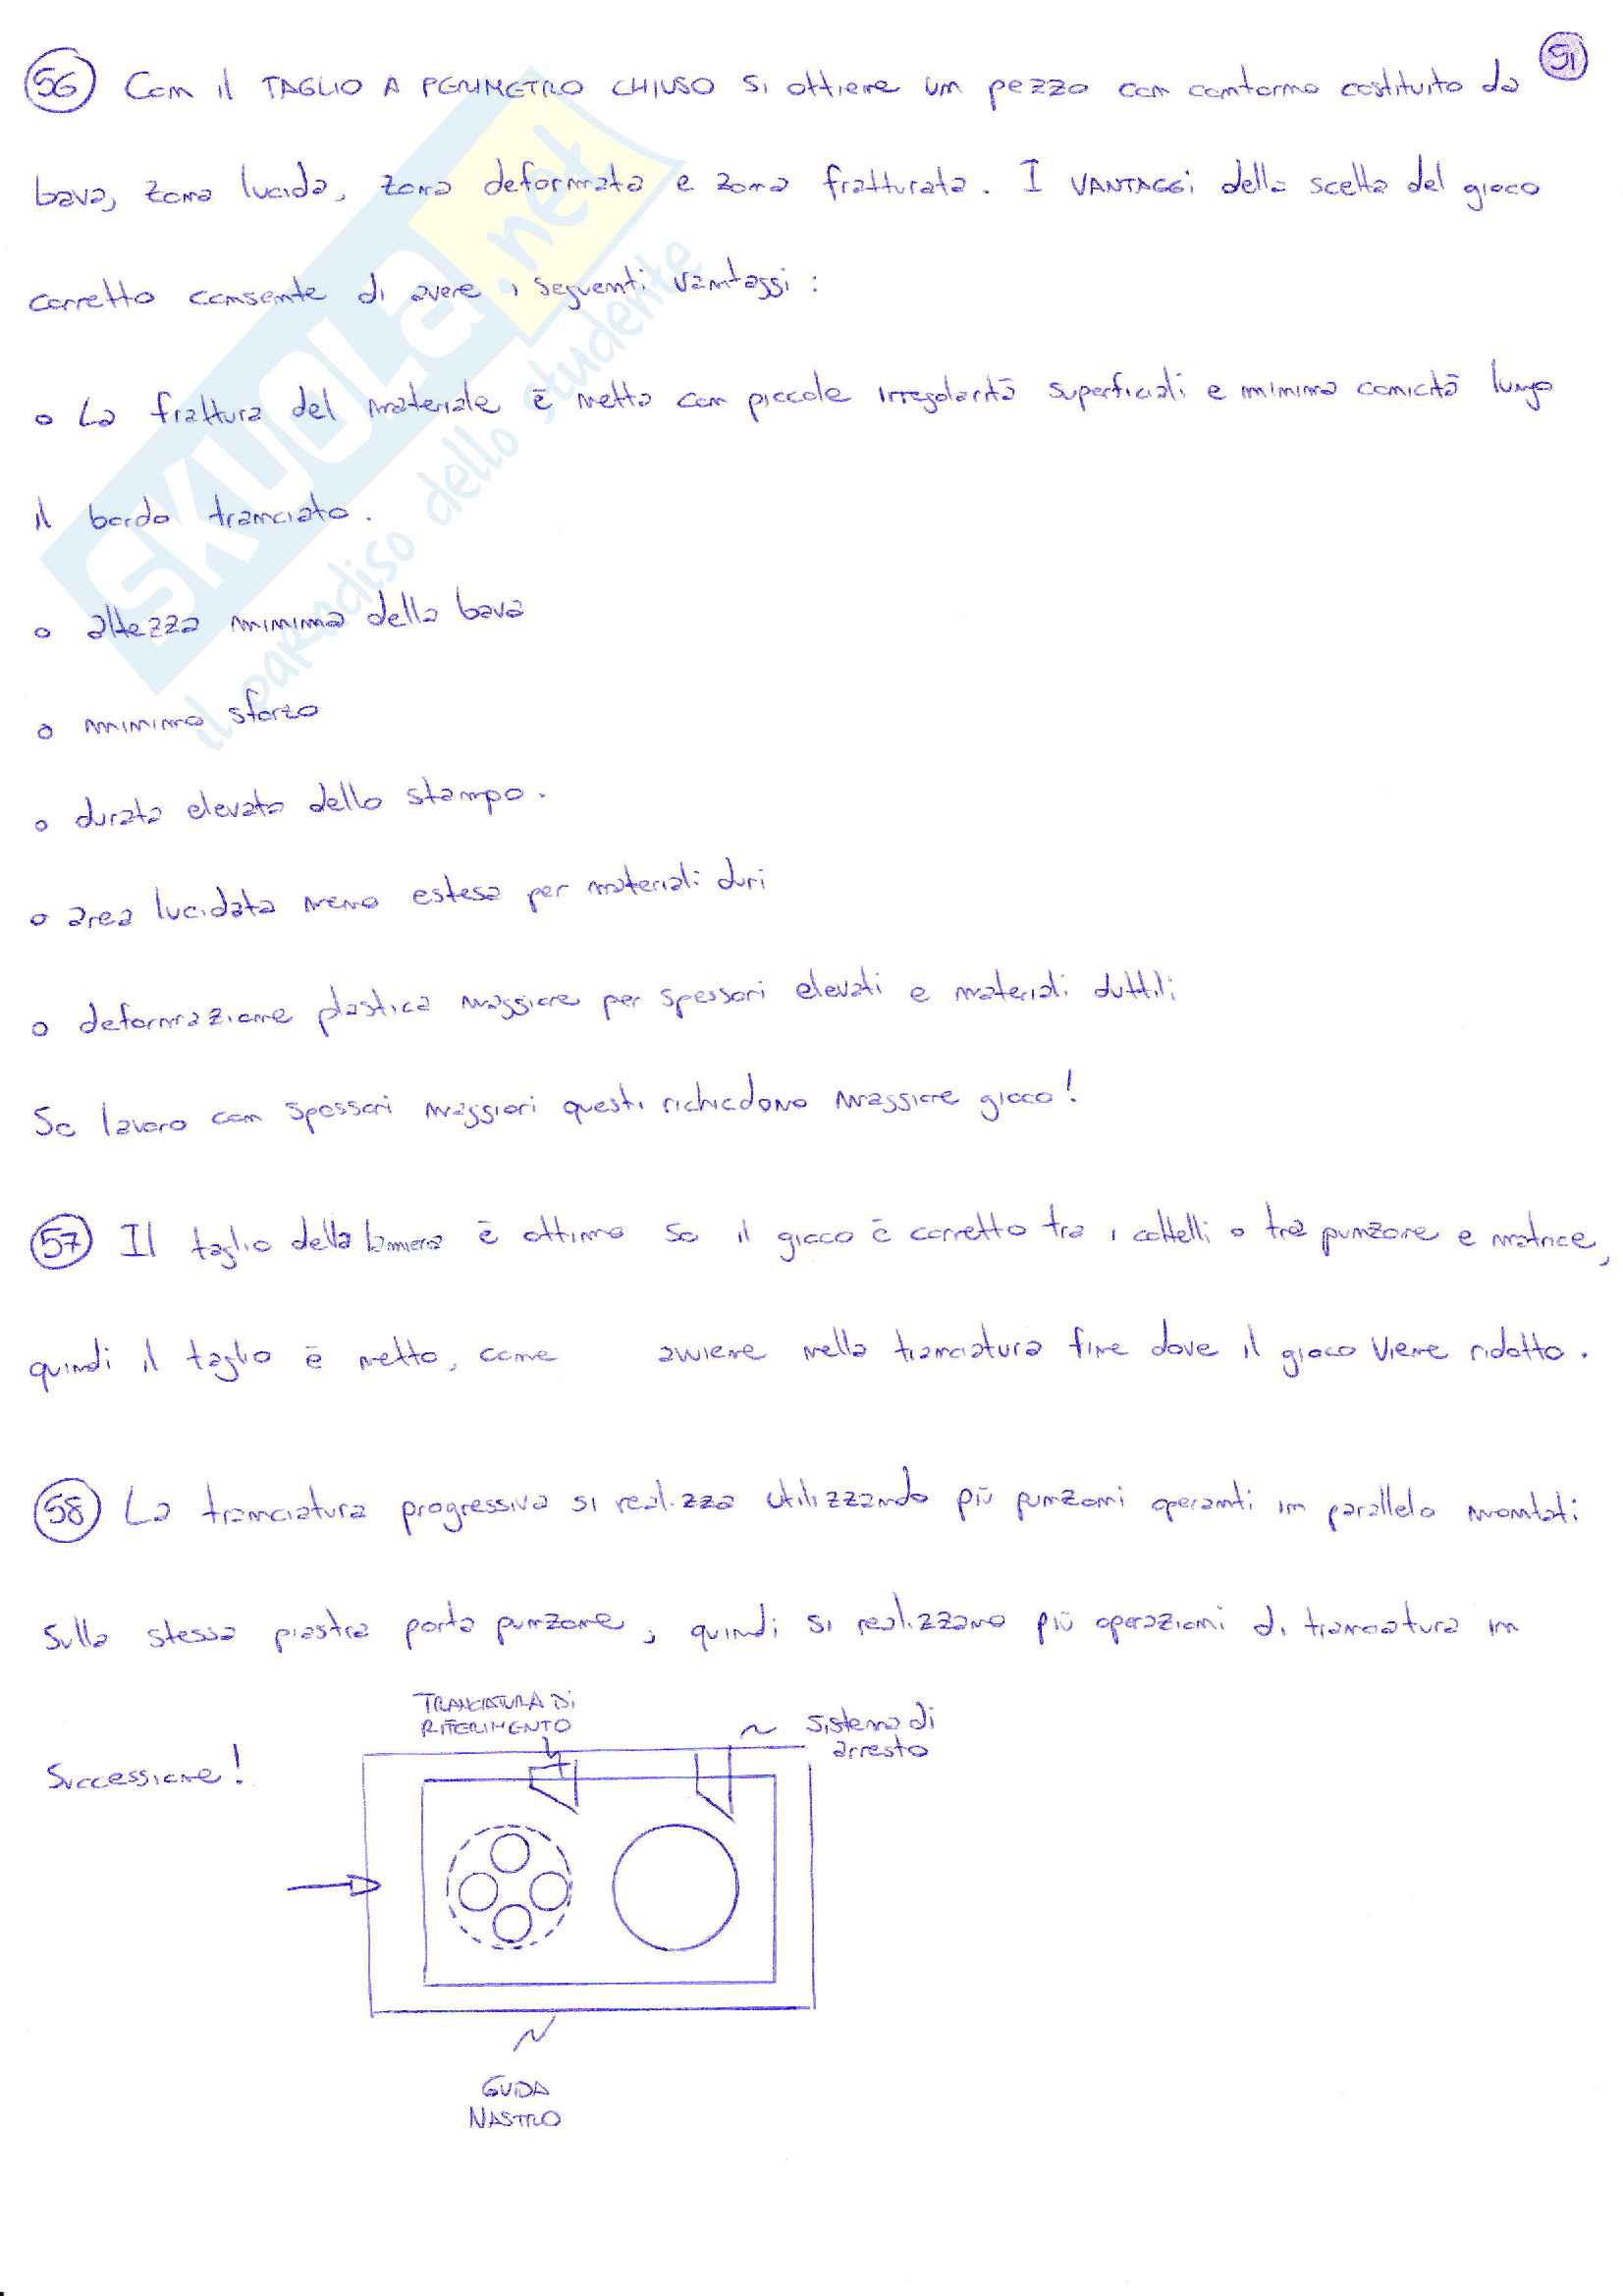 91
56 Con il TAGLIO A PERIMETRO CHIUSO si ottiene un pezzo con contorno costituito da
bava, zona lucida, zona deformata e zona fratturata. I VANTAGGi della scelta del gioco
corretto consente di avere i seguenti vantaggi:
o La frattura del materiale è netta con piccole irregolarità superficiali e minima conicità lungo
il bordo tranciato.
o altezza minima della bava
o minimo sforzo
o durata elevata dello stampo.
o area lucidata meno estesa per materiali duri
o deformazione plastica maggiore per spessori elevati e materiali duttili
Se lavoro con spessori maggiori questi richiedono maggiore gioco!
57 Il taglio della lamiera è ottimo se il gioco è corretto tra i coltelli o tra punzone e matrice,
quindi il taglio è netto, come avviene nella tranciatura fine dove il gioco viene ridotto.
58 La tranciatura progressiva si realizza utilizzando più punzoni operanti in parallelo montati
sulla stessa piastra porta punzone, quindi si realizzano più operazioni di tranciatura in
successione!
TRANCIATURA Di
RIFERIMENTO
Sistema di
arresto
GUIDA
NASTRO
SKUOLA.net
il paradiso dello studente